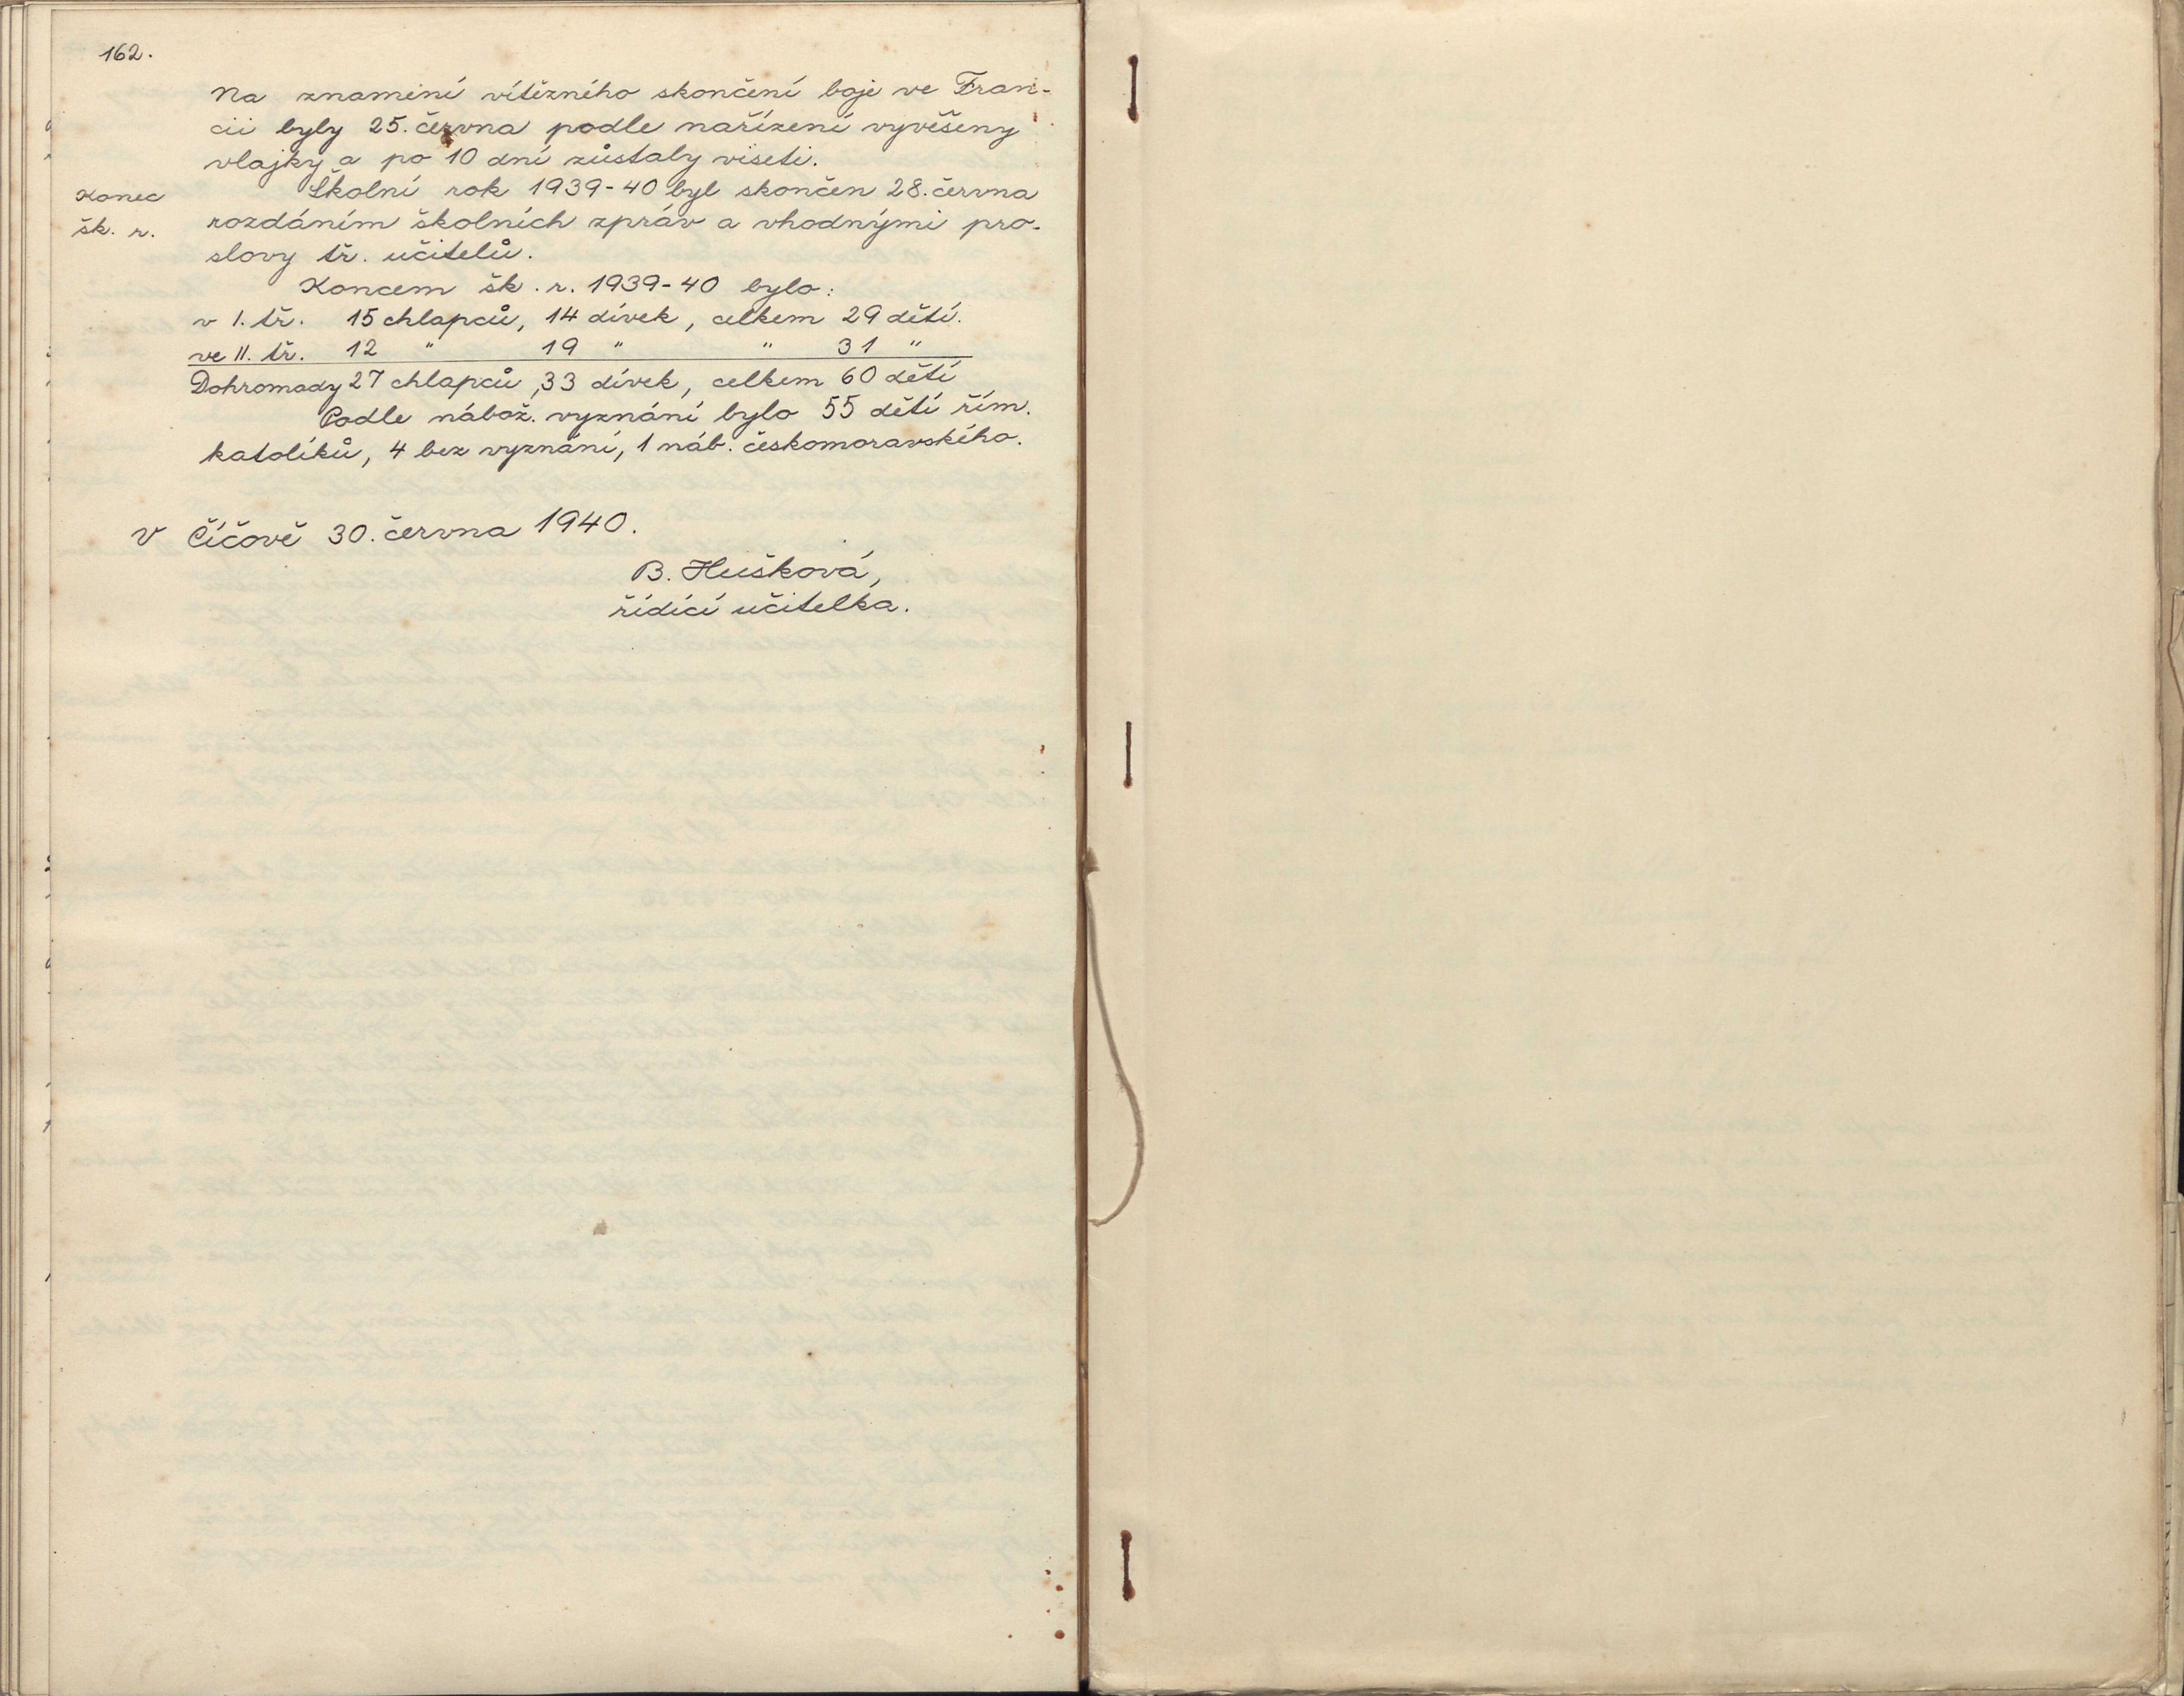 162.
Na znamení vítězného skončení boje ve Fran-
cii byly 25. června podle nařízení vyvěšeny
vlajky a po 10 dní zůstaly viseti.
Konec
šk. r.
Školní rok 1939-40 byl skončen 28. června
rozdáním školních zpráv a vhodnými pro-
slovy tř. učitelů.
Koncem šk. r. 1939-40 bylo:
v I. tř. 15 chlapců, 14 dívek, celkem 29 dětí.
ve II. tř. 12 " 19 " " 31 "
Dohromady 27 chlapců, 33 dívek, celkem 60 dětí
Podle nábož. vyznání bylo 55 dětí řím.
katolíků, 4 bez vyznání, 1 náb. českomoravského.
V Číčově 30. června 1940.
B. Hušková,
řídící učitelka.